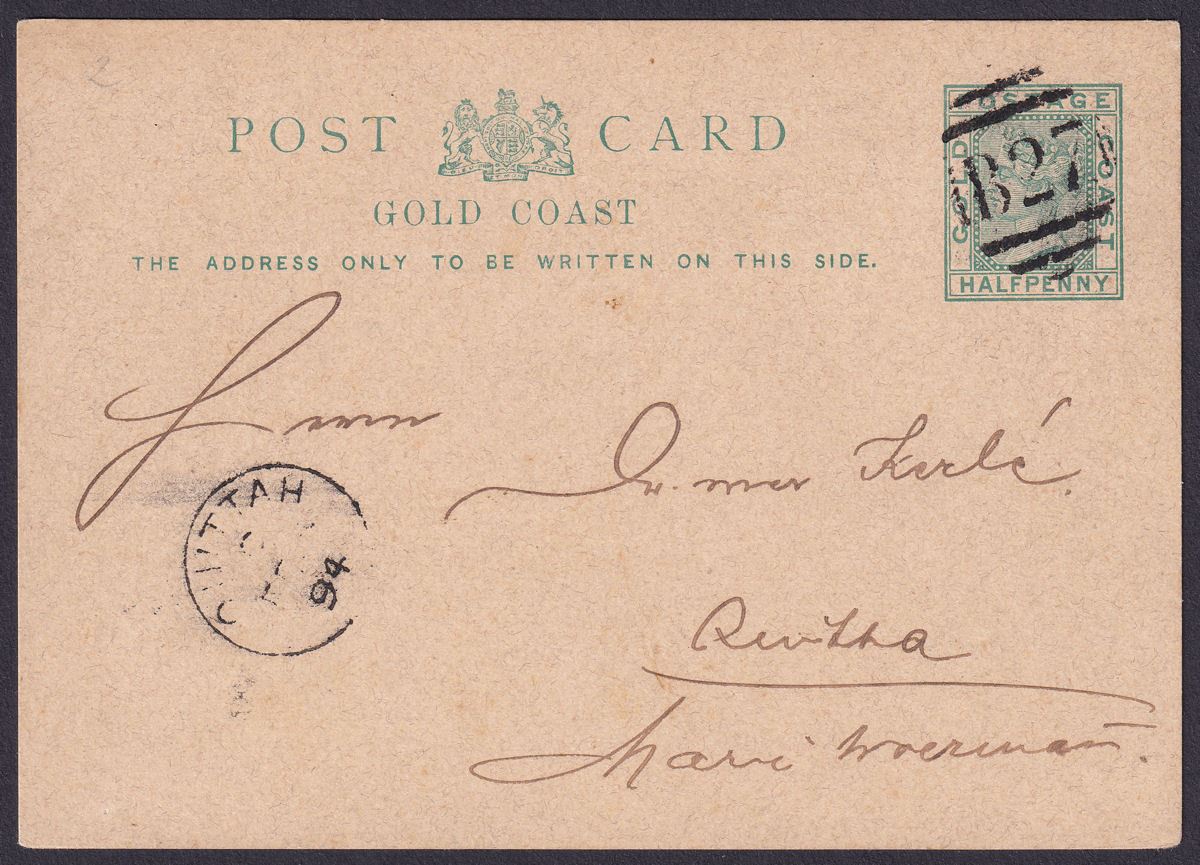 2
POST CARD
GOLD COAST
THE ADDRESS ONLY TO BE WRITTEN ON THIS SIDE.
POSTAGE
GOLD
COAST
HALFPENNY
B27
Herrn
Dr.
QUITTAH
94
Marie Woermann.